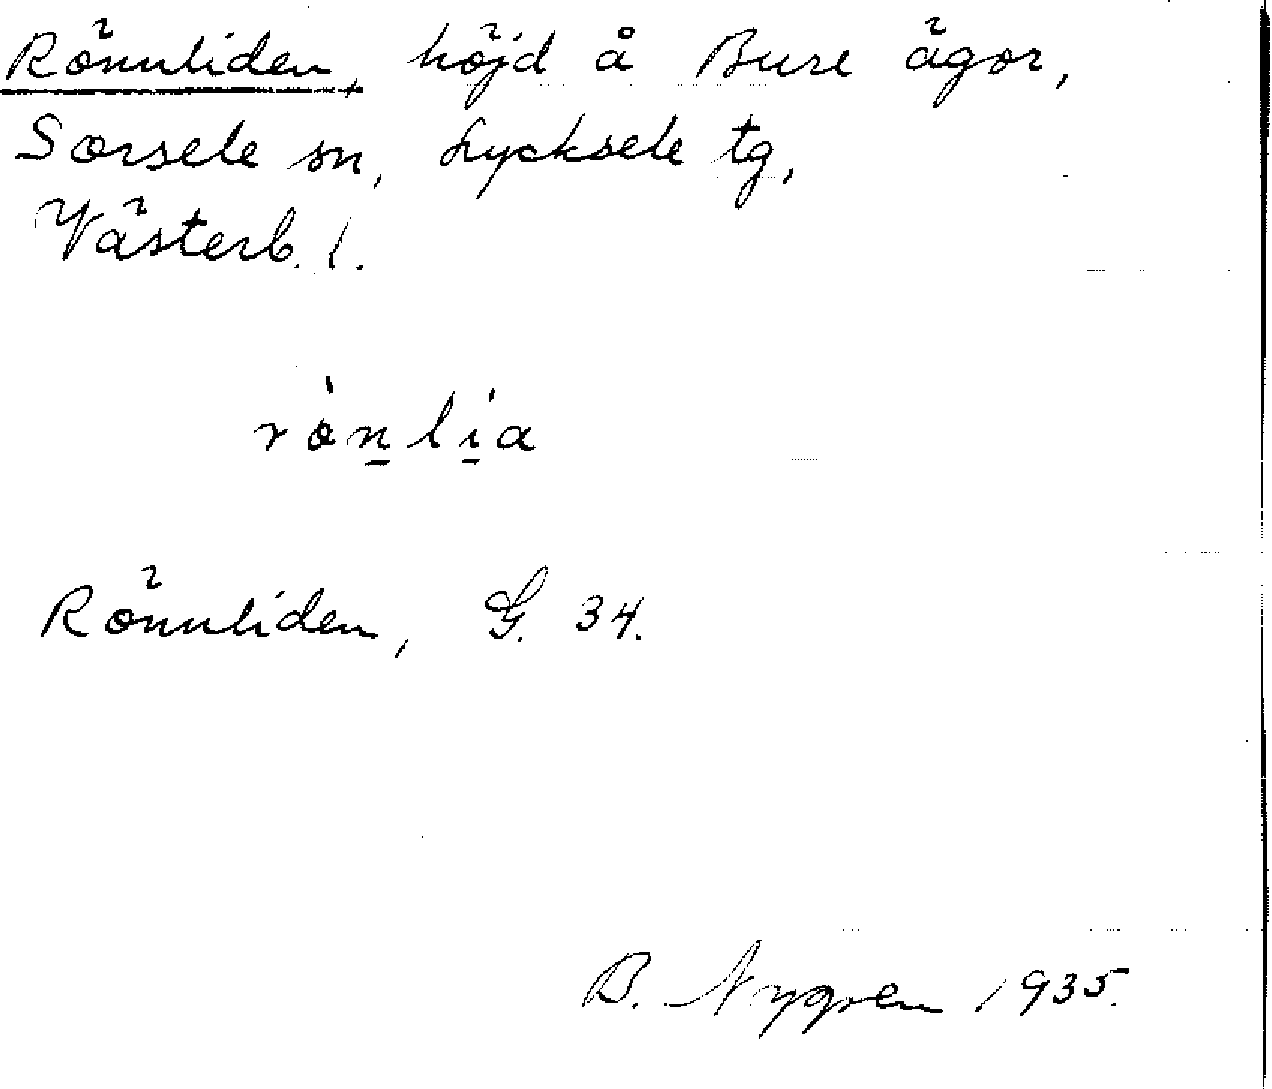 Rönnliden, höjd å Bure ägor,
Sorsele sn, Lycksele tg,
Västerb. l.
rönlia
Rönnliden, G. 34.
B. Nygren 1935.